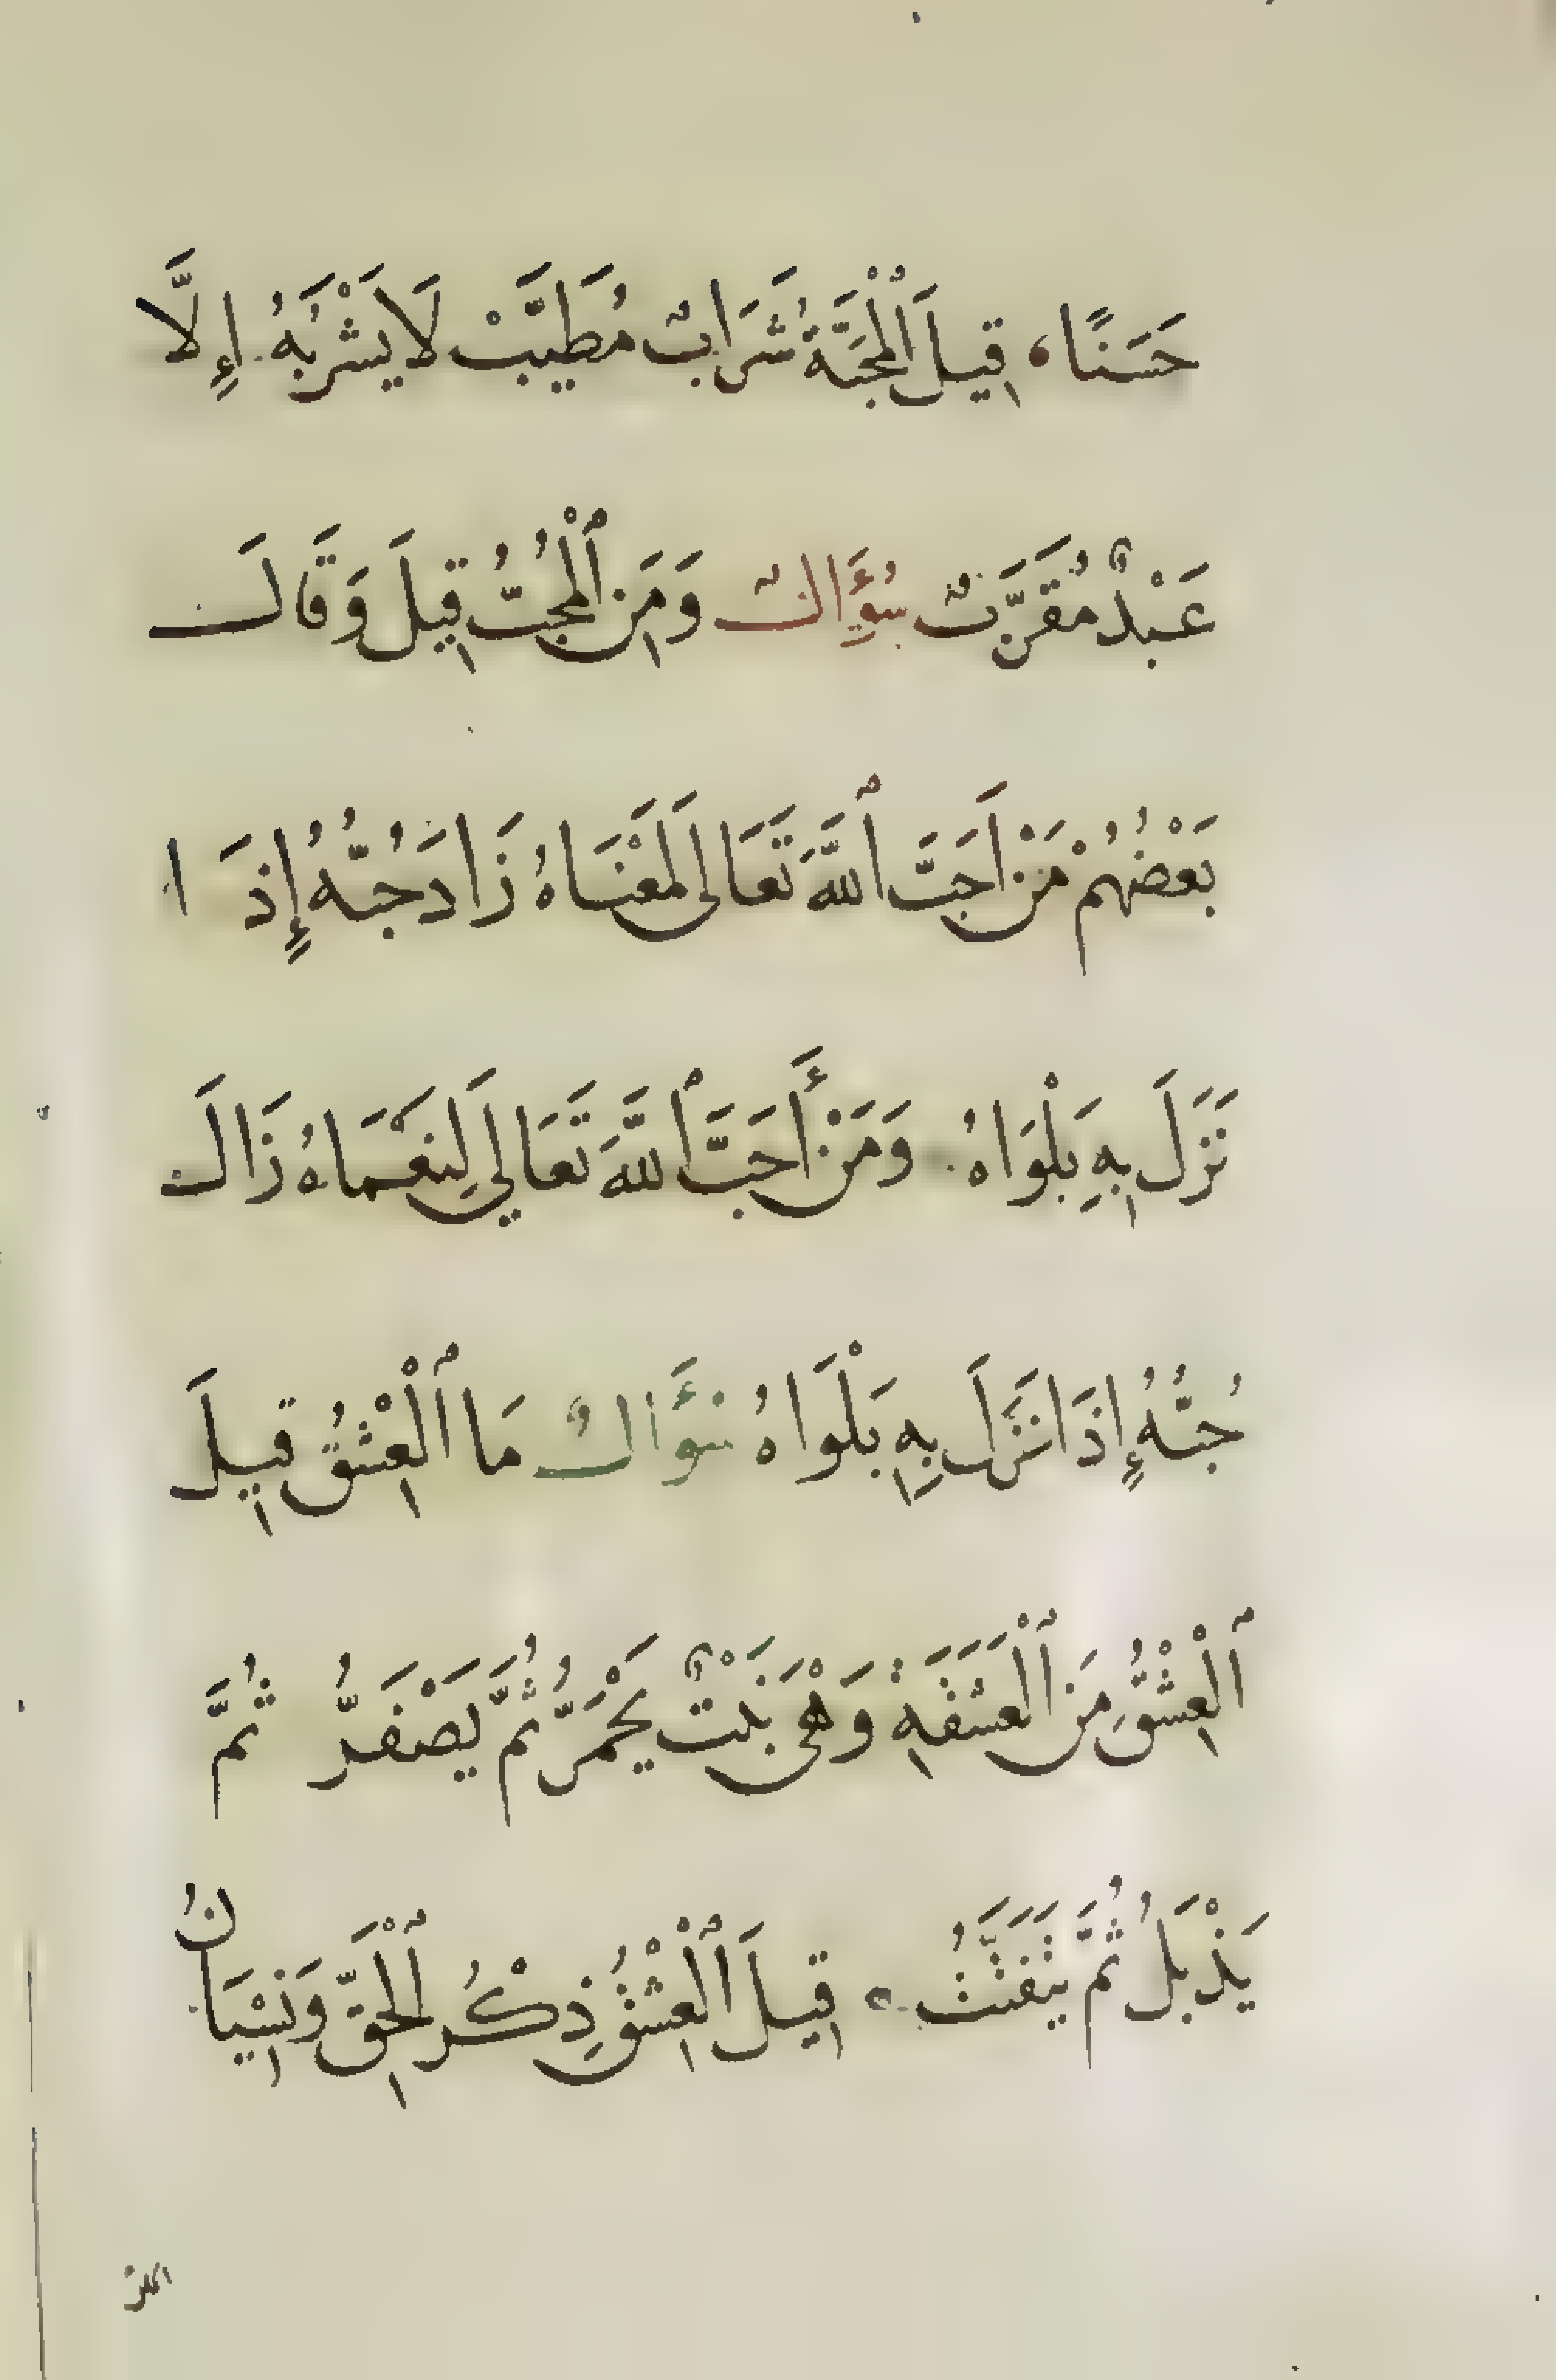 حَسَنًا، قِيلَ الْمَحَبَّةُ شَرَابٌ مُطَيَّبْ لَا يَشْرَبُهُ إِلَّا
عَبْدٌ مُقَرَّبٌ سُؤَالٌ وَمَنِ ٱلْمُحِبُّ قِيلَ وَقَالَ
بَعْضُهُمْ مَنْ اَحَبَّ ٱللَّهَ تَعَالَى لِمَعْنَاهُ زَادَ حُبُّهُ إِذَا
نَزَلَ بِهِ بَلْوَاهُ وَمَنْ أَحَبَّ ٱللَّهَ تَعَالَى لِنَعْمَاهُ زَالَ
حُبُّهُ إِذَا نَزَلَ بِهِ بَلْوَاهُ سُؤَالٌ مَا ٱلْعِشْقُ قِيلَ
ٱلْعِشْقُ مِنَ ٱلْعَشَقَةِ وَهْىَ نَبْتٌ يَحْمَرُّ ثُمَّ يَصْفَرُّ ثُمَّ
يَذْبَلُ ثُمَّ يَتَفَتَّتُ قِيلَ ٱلْعِشْقُ ذِكْرُ ٱلْحَقِّ وَنِسْيَانُ